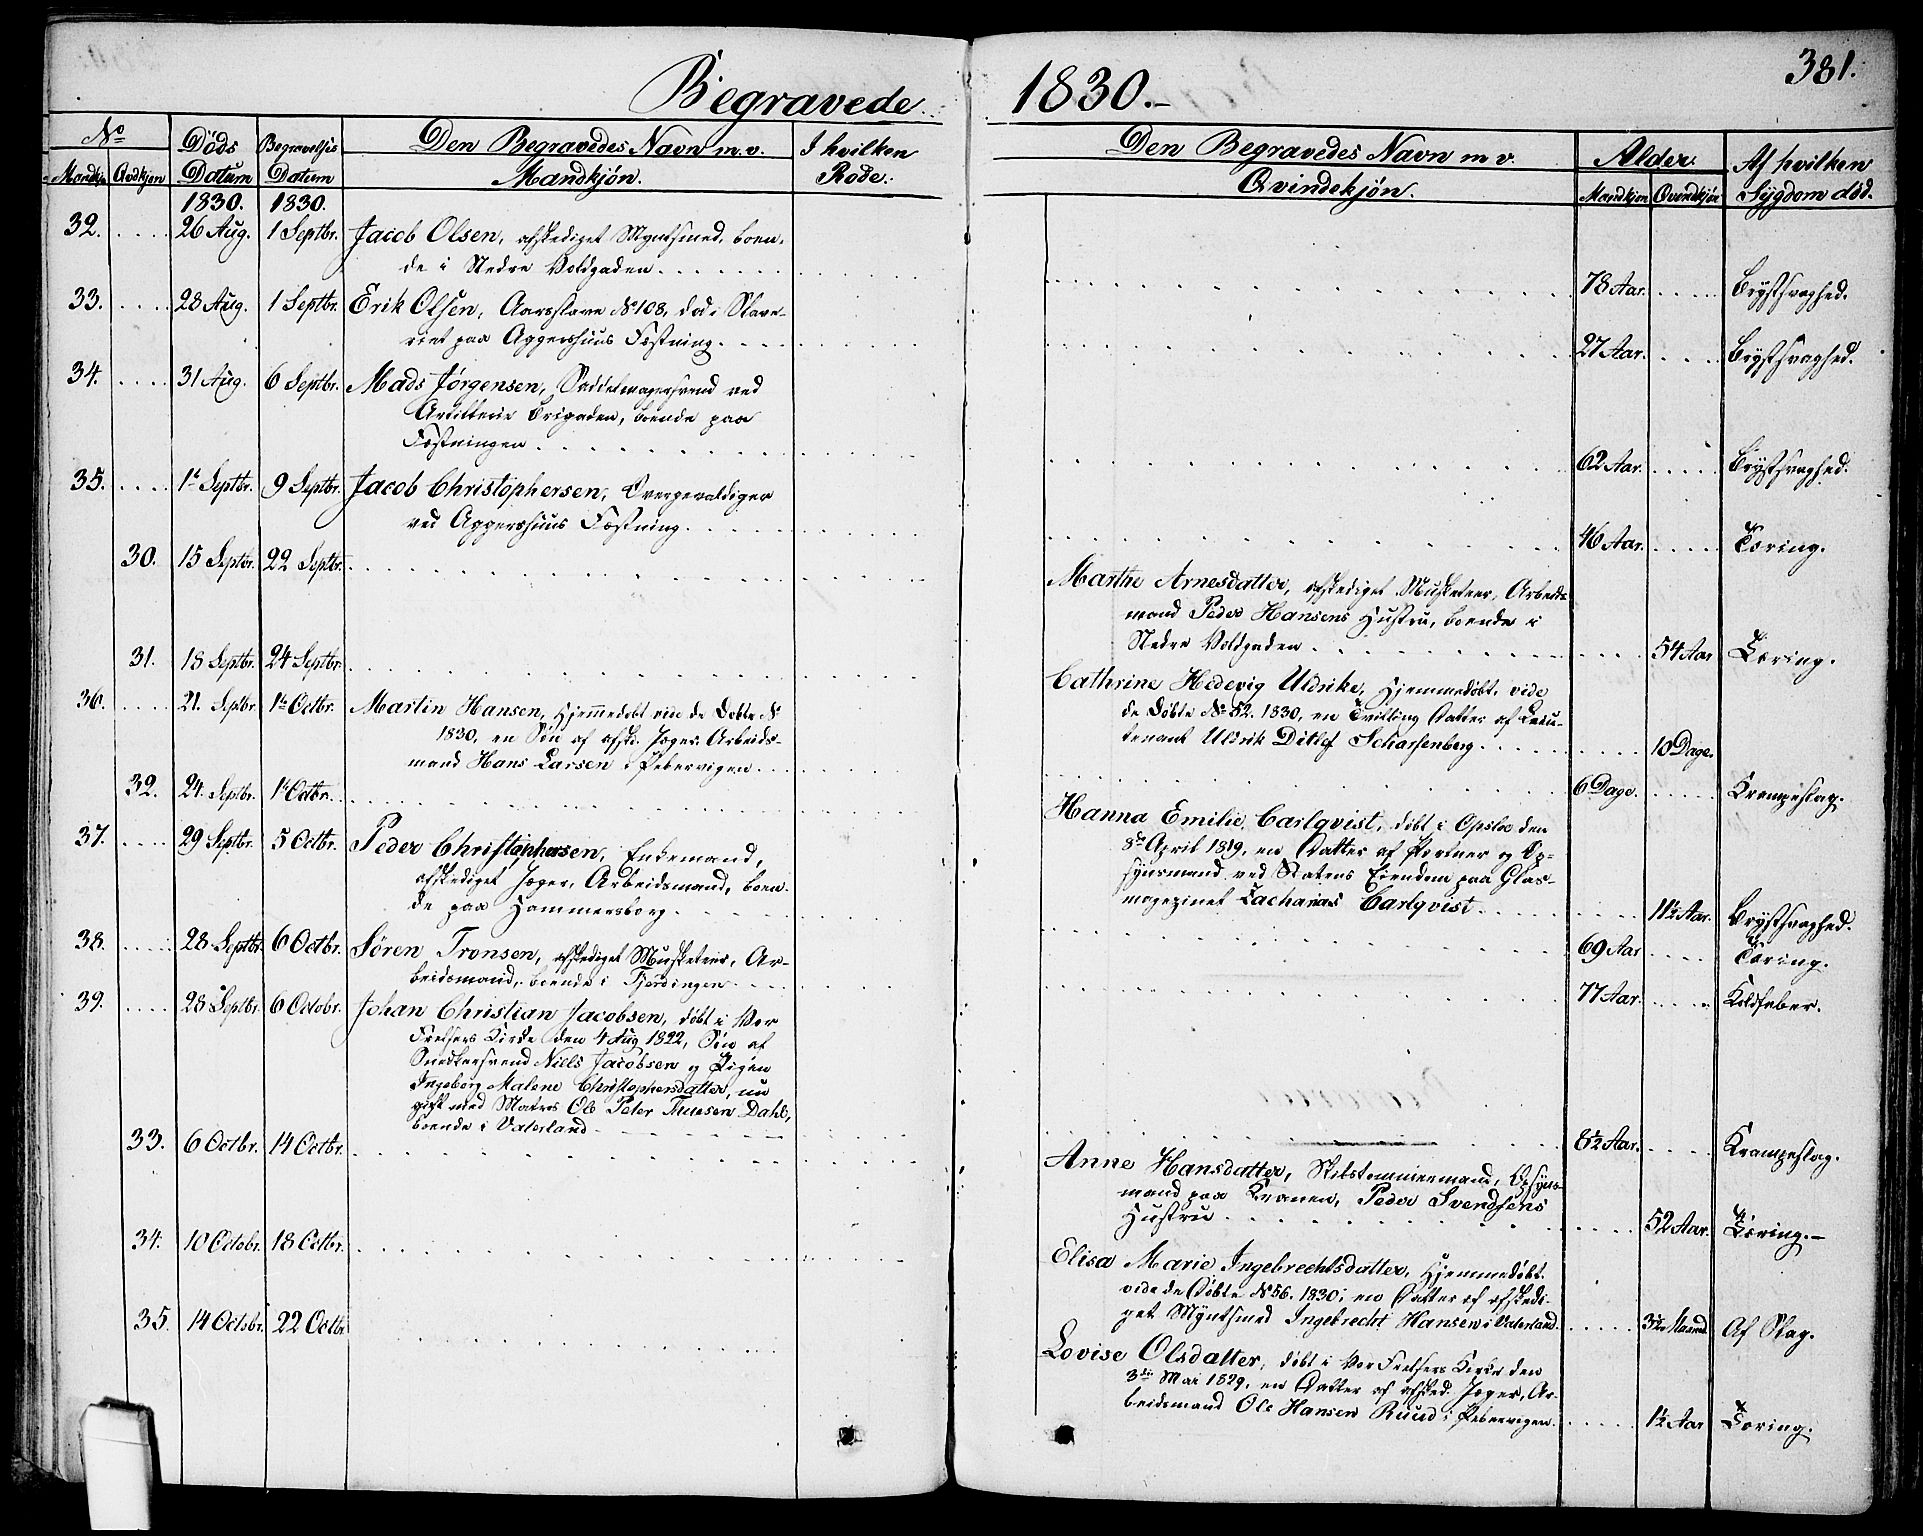 Begravede
1830.
381.
No
Döds Datum
Begravelses Datum
Den Begravedes Navn m. v.
I hvilken Rode.
Mandkjøn
Qvdkjøn
Mandkjøn.
1830. 1830.
32. 26 Aug. 1 Septbr. Jacob Olsen, afskediget Myntsmed, boen-
de i Nedre Voldgaden
33. 28 Aug. 1 Septbr. Erik Olsen, Aarsslave No 108, død i Slave-
riet paa Aggershuus Fæstning.
34. 31 Aug. 6 Septbr. Mads Jørgensen, Saddelmagersvend ved
Artillerie Brigaden, boende paa
Fæstningen
35. 1ste Septbr. 9 Septbr. Jacob Christophersen, Overgevaldiger
ved Aggershuus Fæstning.
30. 15 Septbr. 22 Septbr.
31. 18 Septbr. 24 Septbr.
36. 21. Septbr. 1ste Octbr. Martin Hansen, Hjemmedøbt vide de Døbte No
1830, en Søn af afsk. Jæger, Arbeids-
mand Hans Larsen i Pebervigen
32. 24. Septbr. 1ste Octbr.
37. 29 Septbr. 5 Octbr. Peder Christophersen, Enkemand,
afskediget Jæger, Arbeidsmand, boen-
de paa Hammersborg.
38. 28. Septbr. 6 Octbr. Søren Tronsen, afskediget Musketeer, Ar-
beidsmand, boende i Fjerdingen
39. 28 Septbr. 6 Octobr. Johan Christian Jacobsen, døbt i Vor
Frelsers Kirke den 4 Aug 1822, Søn af
Snedkersvend Niels Jacobsen og Pigen
Ingeborg Malene Christophersdatter, nu
gift med Matros Ole Peter Thuesen Dahl,
boende i Vaterland
33. 6 Octbr. 14 Octbr.
34. 10 Octobr. 18 Octbr.
35. 14 Octobr. 22 Octbr
Den Begravedes Navn m v.
Qvindekjøn.
Alder
Mandkjøn
Qvindkjøn
Af hvilken Sygdom död.
78 Aar. Brystsvaghed.
27 Aar. Brystsvaghed.
62 Aar. Brystsvaghed.
46 Aar. Tæring.
Marthe Arnesdatter, afskediget Musketeer, Arbeids-
mand Peder Hansens Hustru, boende i
Nedre Voldgaden 54 Aar Tæring.
Cathrine Hedevig Uldrike, Hjemmedøbt, vide
de Døbte No 52. 1830, en Tvilling Datter af Lieu-
tenant Uldrik Ditlef Scharfenberg 10 Dage.
6 Dage. Krampeslag.
Hanna Emilie Carlqvist, døbt i Opslo den
8de April 1819, en Datter af Portner og Op-
synsmand ved Statens Eiendom paa Glas-
magazinet Zacharias Carlqvist 11½ Aar. Brystsvaghed.
69 Aar Tæring.
77 Aar. Koldfeber.
8½ Aar. Krampeslag.
Anne Hansdatter, Skibstømmermand, Opsyns-
mand paa Kranen, Peder Svendsens
Hustru 52 Aar. Tæring.
Elisa Marie Ingebrechtsdatter, Hjemmedøbt
vide de Døbte No 56. 1830; en Datter af afskedi-
get Myntsmed Ingebrecht Hansen i Vaterland. Maaned Af Slag.
Lovise Olsdatter, døbt i Vor Frelsers Kirke den
3die Mai 1829, en Datter af afsked. Jæger, Ar-
beidsmand Ole Hansen Ruud i Pebervigen 1½ Aar Tæring.